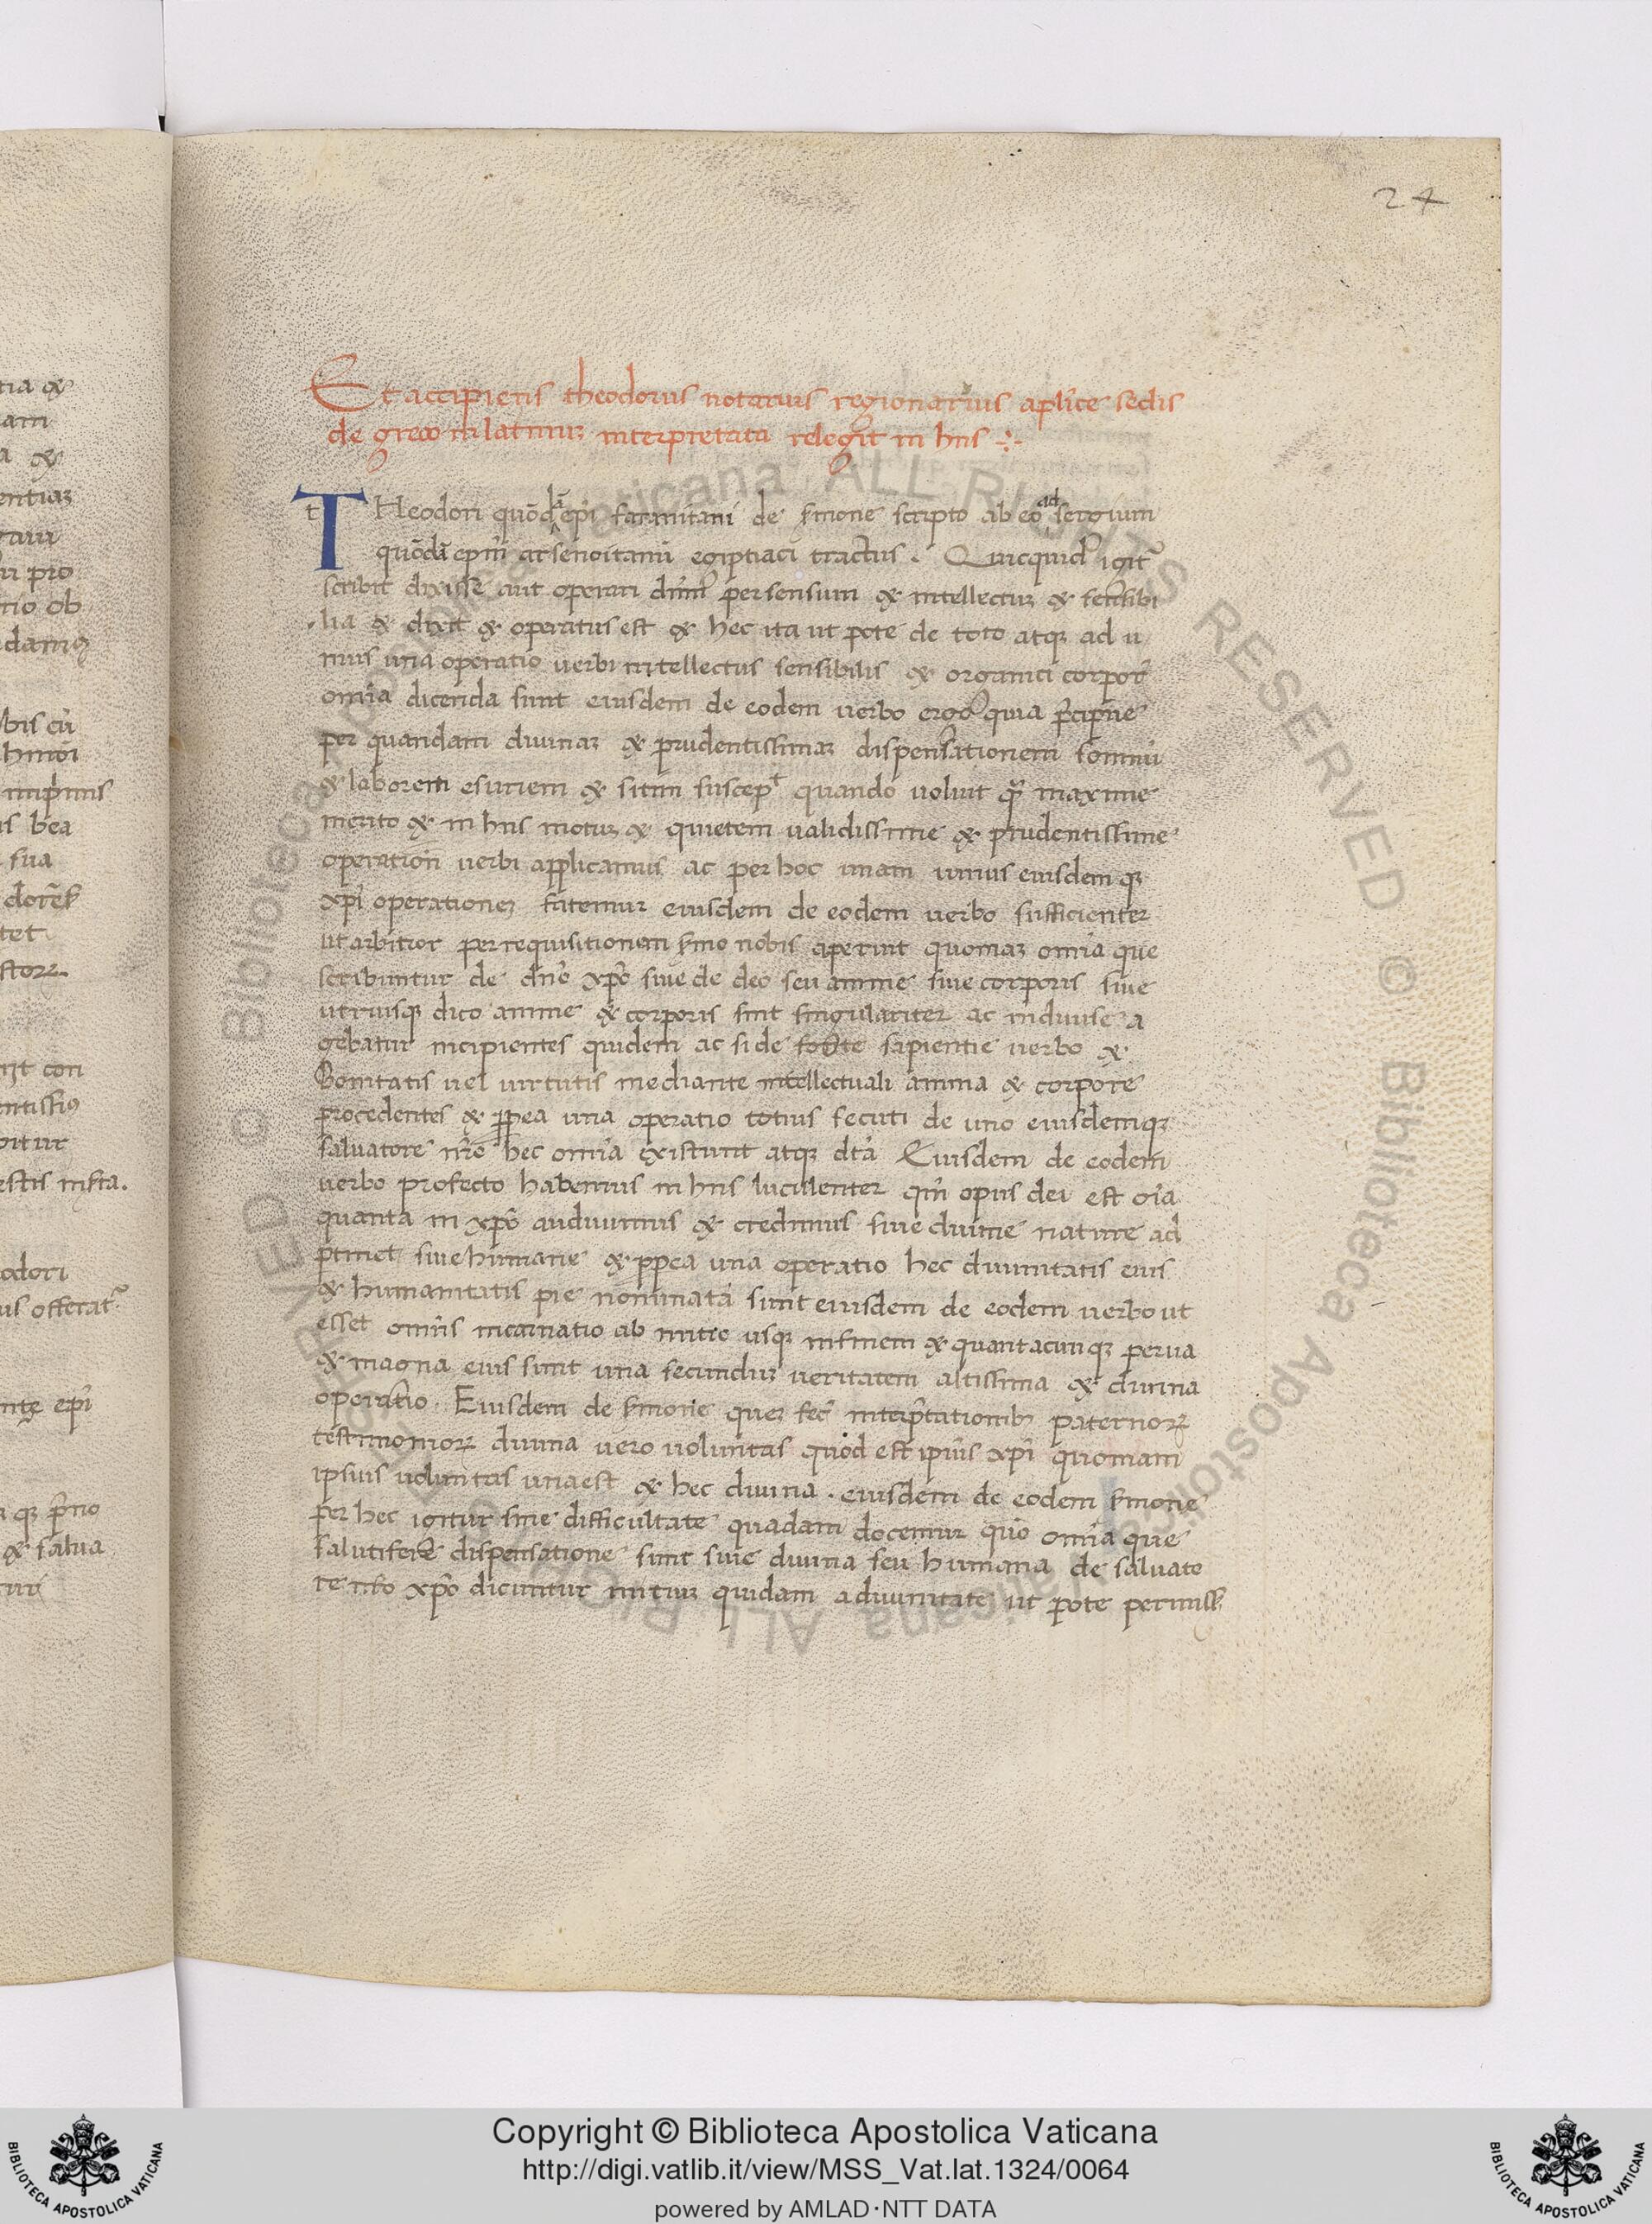 24
Et accipiens theodorus notarius regionarius aplice sedis
de greco in latinuz interpretata relegit in hiis
t THeodori quōdā epi faranitani de smone scripto ab eo ad sergium
quōdā epm arsenoitanū egiptiaci tractus. Quicquid igit
scribit dixisse aut operari dnm per sensum & intellectuz & sensibi
lia & dixit & operatus est & hec ita ut pote de toto atqz ad u
nius una operatio verbi intellectus sensibilis & organici corpor
omia dicenda sunt eiusdem de eodem verbo ergo quia pcipue
per quandam divinaz & prudentissimaz dispensationem somnū
& laborem esuriem & sitim suscepit quando voluit maxime
merito & in hiis motuz & quietem validissime & prudentissime
operation verbi applicamus ac per hoc unam unius eiusdem qz
xpi operationez fatemur eiusdem de eodem verbo sufficienter
ut arbitror per requisitionem smo nobis aperuit quoniaz omia que
scribuntur de dno xpo sive de deo seu anime sive corporis sive
utriusqz dico anime & corporis sint singulariter ac indivise a
gebatur incipientes quidem ac si de fonte sapientie verbo &
Bonitatis vel virtutis mediante intellectuali anima & corpore
procedentes & ppea una operatio totius secuti de uno eiusdemqz
salvatore nro hec omia existunt atqz dta Eiusdem de eodem
verbo profecto habemus in hiis luculenter qm opus dei est oia
quanta in xpo audivimus & credimus sive divine nature ad
ptinet sive humane & ppea una operatio hec divinitatis eius
& humanitatis pie nominata sunt eiusdem de eodem verbo ut
esset omis incarnatio ab initio usqz in finem & quantacunqz perva
& magna eius sunt una secunduz veritatem altissima & divina
operatio. Eiusdem de smone quez fec interptationib paternorz
testimoniorz divina vero voluntas quod est ipius xpi quoniam
ipsius voluntas una est & hec divina. eiusdem de eodem smone
per hec igitur sine difficultate quadam docemur quo omia que
salutifere dispensatione sunt sive divina seu humana de salvato
re nro xpo dicuntur initiuz quidam a divinitate ut pote permiss
Copyright © Biblioteca Apostolica Vaticana
http://digi.vatlib.it/view/MSS_Vat.lat.1324/0064
powered by AMLAD·NTT DATA
BIBLIOTECA APOSTOLICA VATICANA
BIBLIOTECA APOSTOLICA VATICANA